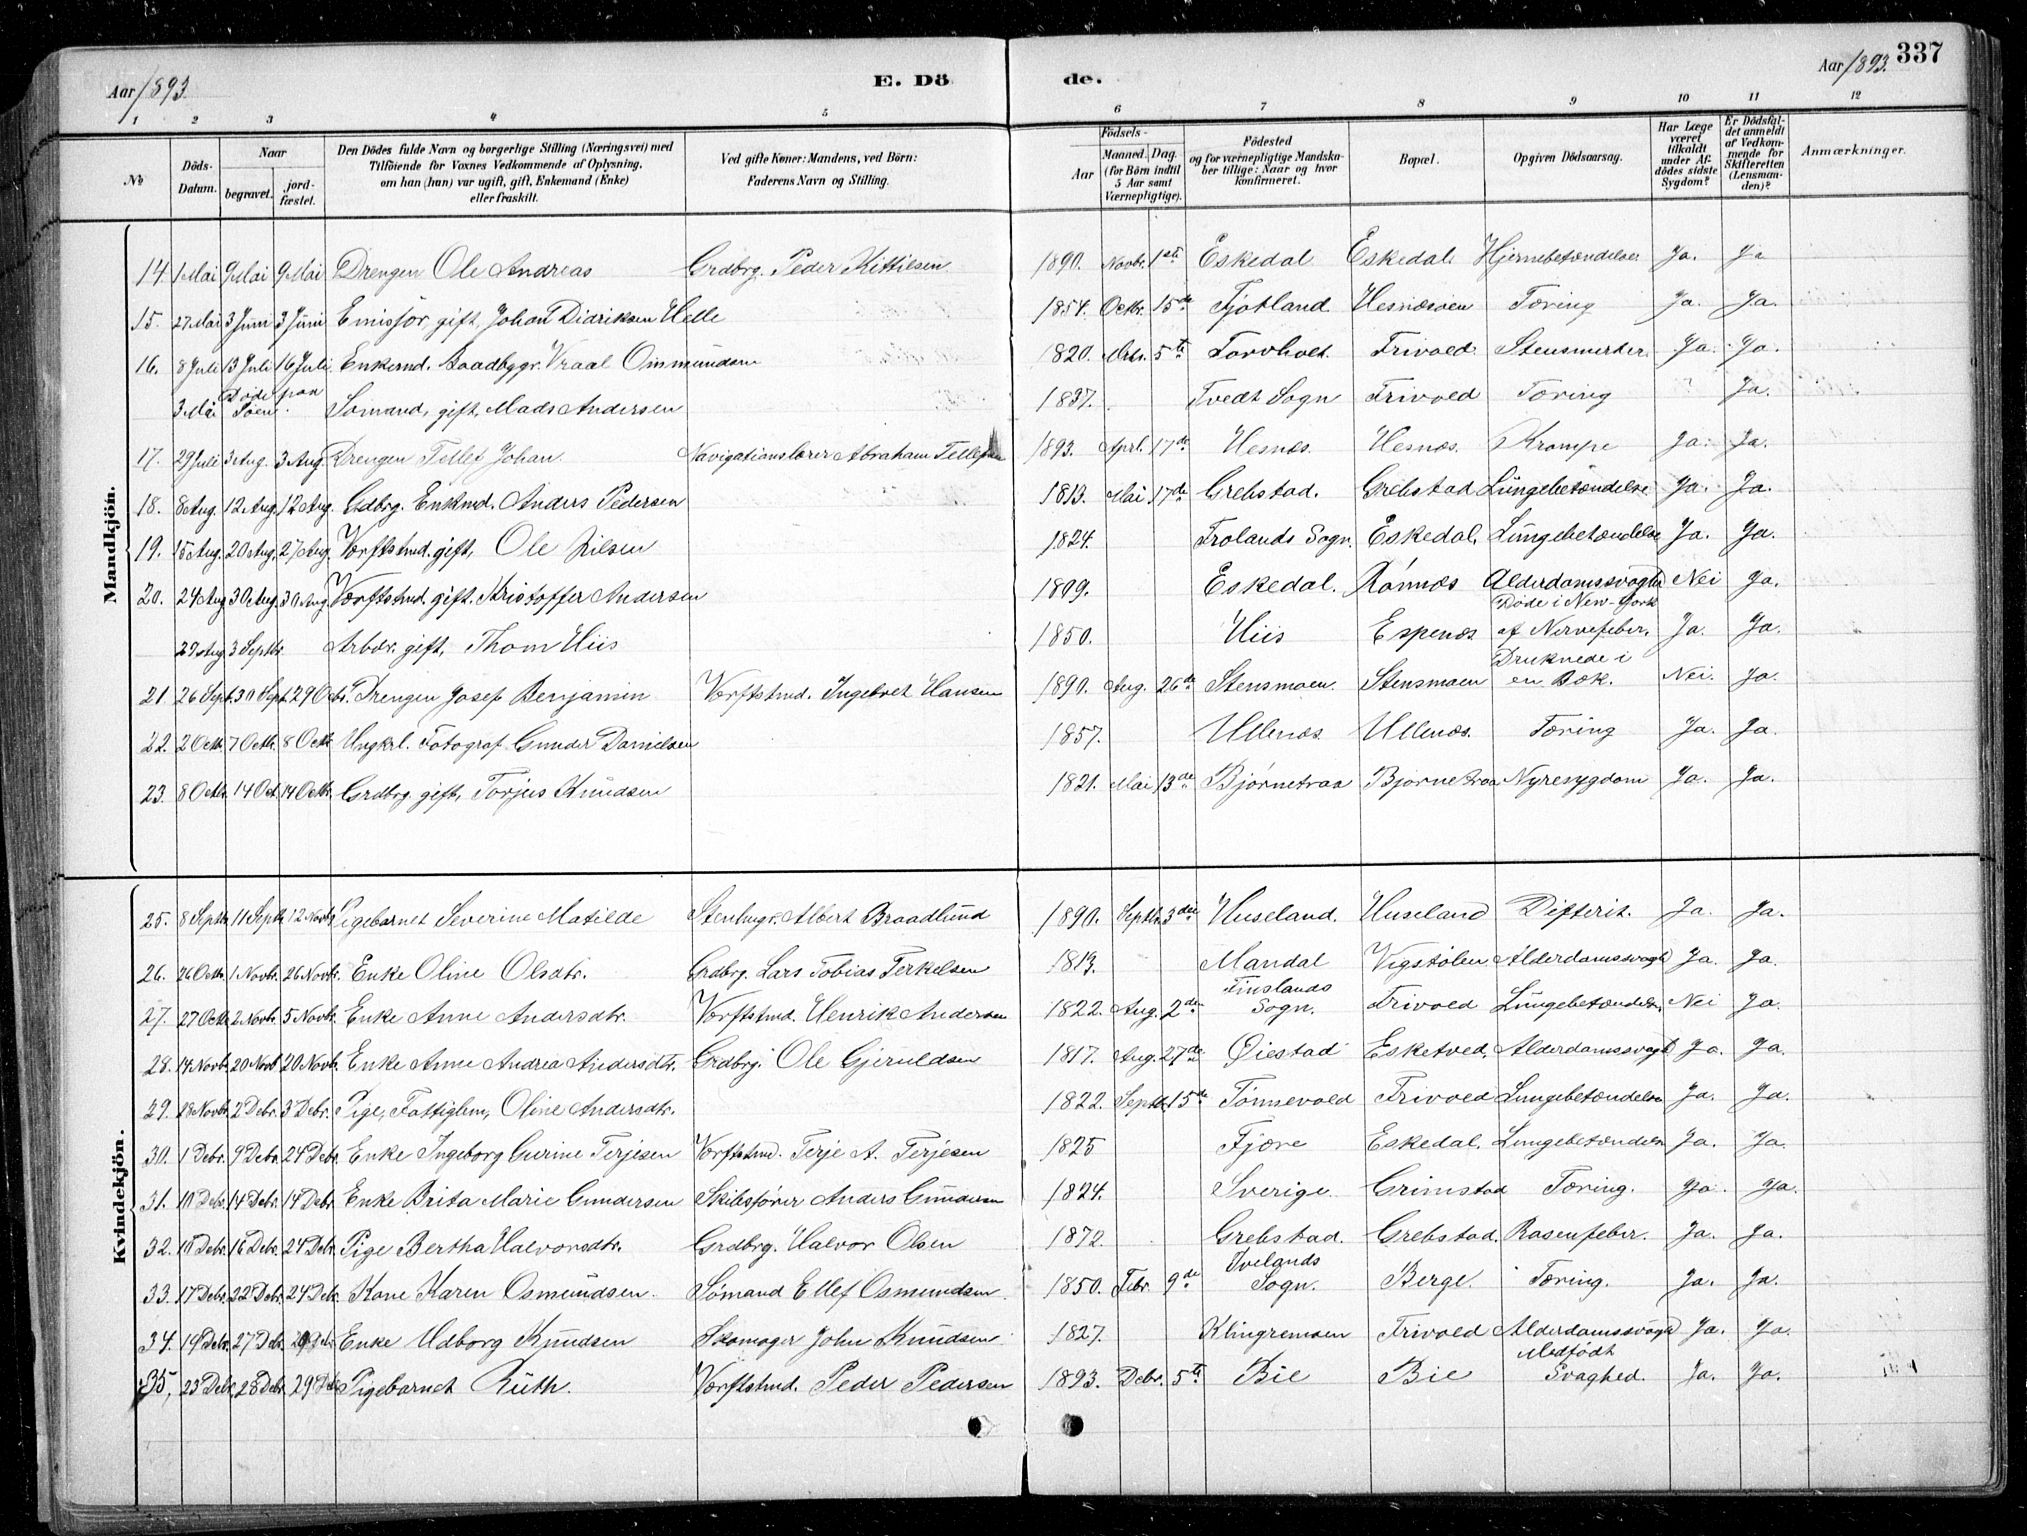 Aar 1893. E. Dö de. Aar 1893. 337
1 2 3 4 5 6 7 8 9 10 11 12
№ Döds-Datum. Naar begravet. jord-fæstet. Den Dödes fulde Navn og borgerlige Stilling (Næringsvei) med Tilföiende for Voxnes Vedkommende af Oplysning, om han (hun) var ugift, gift, Enkemand (Enke) eller fraskilt. Ved gifte Koner: Mandens, ved Börn: Faderens Navn og Stilling. Födsels- Aar Maaned. Dag. (for Börn indtil 5 Aar samt Værnepligtige). Födested og for værnepligtige Mandska-ber tillige: Naar og hvor konfirmeret. Bopæl. Opgiven Dödsaarsag. Har Læge været tilkaldt under Af-dödes sidste Sygdom? Er Dödsfal-det anmeldt af Vedkom-mende for Skifteretten (Lensman-den)? Anmærkninger.
Mandkjön.
14. 1 Mai 9 Mai 9 Mai Drengen Ole Andreas Grdbrg. Peder Kittilsen 1890. Novbr. 1ste Eskedal Eskedal. Hjernebetændelse Ja. Ja
15. 27 Mai 3 Juni 3 Juni Emissær, gift, Johan Didriksen Helle 1854. Octbr. 15de Fjotland Hesnæsøen Tæring Ja. Ja.
16. 8 Juli 13 Juli 16 Juli Enkemd. Baadbyggr. Vraal Ommundsen 1820. 5te Torvholt. Frivold Stensmerter Ja. Ja.
3 Mai Døde paa Søen. Sømand, gift, Mads Andersen 1837. Tvedt Sogn Frivold Tæring Ja.
17. 29 Juli 3 Aug. 3 Aug. Drengen Tellef Johan Navigationslærer Abraham Tellefsen 1893. Aprl. 17de Hesnæs. Hesnæs. Krampe Ja. Ja.
18. 8 Aug. 12 Aug. 12 Aug. Grdbrg. Enkmd. Anders Pedersen 1813. Mai 17de Grebstad. Grebstad Lungebetændelse Ja. Ja.
19. 15 Aug. 20 Aug. 27 Aug. Værftstmd. gift, Ole Nilsen 1824. Frolands Sogn. Eskedal. Lungebetændelse Ja. Ja.
20. 24 Aug 30 Aug. 30 Aug. Værftstmd. gift. Kristoffer Andersen 1809. Eskedal. Rønnæs Alderdomssvaghd Nei Ja.
29 Aug 3 Septbr. Arbdr. gift, Thom Hiis 1850. Hiis Espenæs Døde i New-York af Nervefeber. Ja. Ja.
21. 26 Sept. 30 Sept. 29 Octbr. Drengen Josef Benjamin Værftstmd. Ingebret Hansen 1890. Aug. 26de Stensmoen. Stensmoen Druknede i en Bæk. Nei. Ja.
22. 2 Octb. 7 Octb. 8 Octb Ungkrl. Fotograf Gunder Danielsen 1857. Ullenæs. Ullenæs. Tæring Ja. Ja.
23. 8 Octb. 14 Oct. 14 Octbr. Grdbrg. gift, Torjus Knudsen 1821. Mai 13de Bjørnetraa Bjørnetraa Nyresygdom Ja. Ja.
Kvindekjön.
25. 8 Septb 11 Septb 12 Novbr Pigebarnet Severine Matilde Stenhugr. Albert Braadlund 1890. Septbr. 3die Huseland. Huseland Difterit. Ja. Ja.
26. 26 Octb. 1 Novbr. 26 Novbr. Enke Oline Olsdtr. Grdbrg. Lars Tobias Terkelsen 1813. Mandal Vigstølen Alderdomssvaghd Ja. Ja.
27. 27 Octb 2 Novbr. 5 Novbr. Enke Anne Andersdtr. Værftstmd. Henrik Andersen 1822. Aug. 2den Finslands Sogn. Frivold Lungebetændelse. Nei Ja.
28. 14 Novbr. 20 Novb 20 Novbr. Enke Anne Andrea Andersdtr. Grdbrg. Ole Gjeruldsen 1817. Aug. 27de Øiestad Esketved. Alderdomssvaghd Ja. Ja.
29. 28 Novbr. 2 Debr. 3 Debr. Pige, Fattiglem, Oline Andersdtr. 1822. Septbr. 15de Tønnevold Frivold Lungebetændelse Ja. Ja.
30. 1 Debr. 9 Debr. 24 Debr. Enke Ingeborg Gurine Terjesen Værftstmd. Terje A. Terjesen 1825 Fjære Eskedal. Lungebetændelse Ja. Ja.
31. 10 Debr. 14 Debr. 14 Debr. Enke Brita Marie Gundersen Skibsfører Anders Gundersen 1824. Sverige. Grimstad Tæring. Ja. Ja.
32. 10 Debr. 16 Debr. 24 Debr. Pige Bertha Halvorsdtr. Grdbrg. Halvor Olsen 1872. Grebstad. Grebstad. Rosenfeber. Ja. Ja.
33. 17 Debr. 22 Debr. 24 Debr. Kone Karen Osmundsen. Sømand Ellef Osmundsen 1850. Febr. 9de Ivelands Sogn. Berge. Tæring. Ja. Ja.
34. 19 Debr. 27 Debr. 29 Debr Enke Udborg Knudsen Skomager John Knudsen 1827. Klingremoen Frivold Alderdomssvaghd Ja. Ja.
35, 23 Debr. 28 Debr. 29 Debr Pigebarnet Ruth. Værftstmd. Peder Pedersen 1893. Debr. 5te Bie Bie Medfødt Svaghed. Ja. Ja.